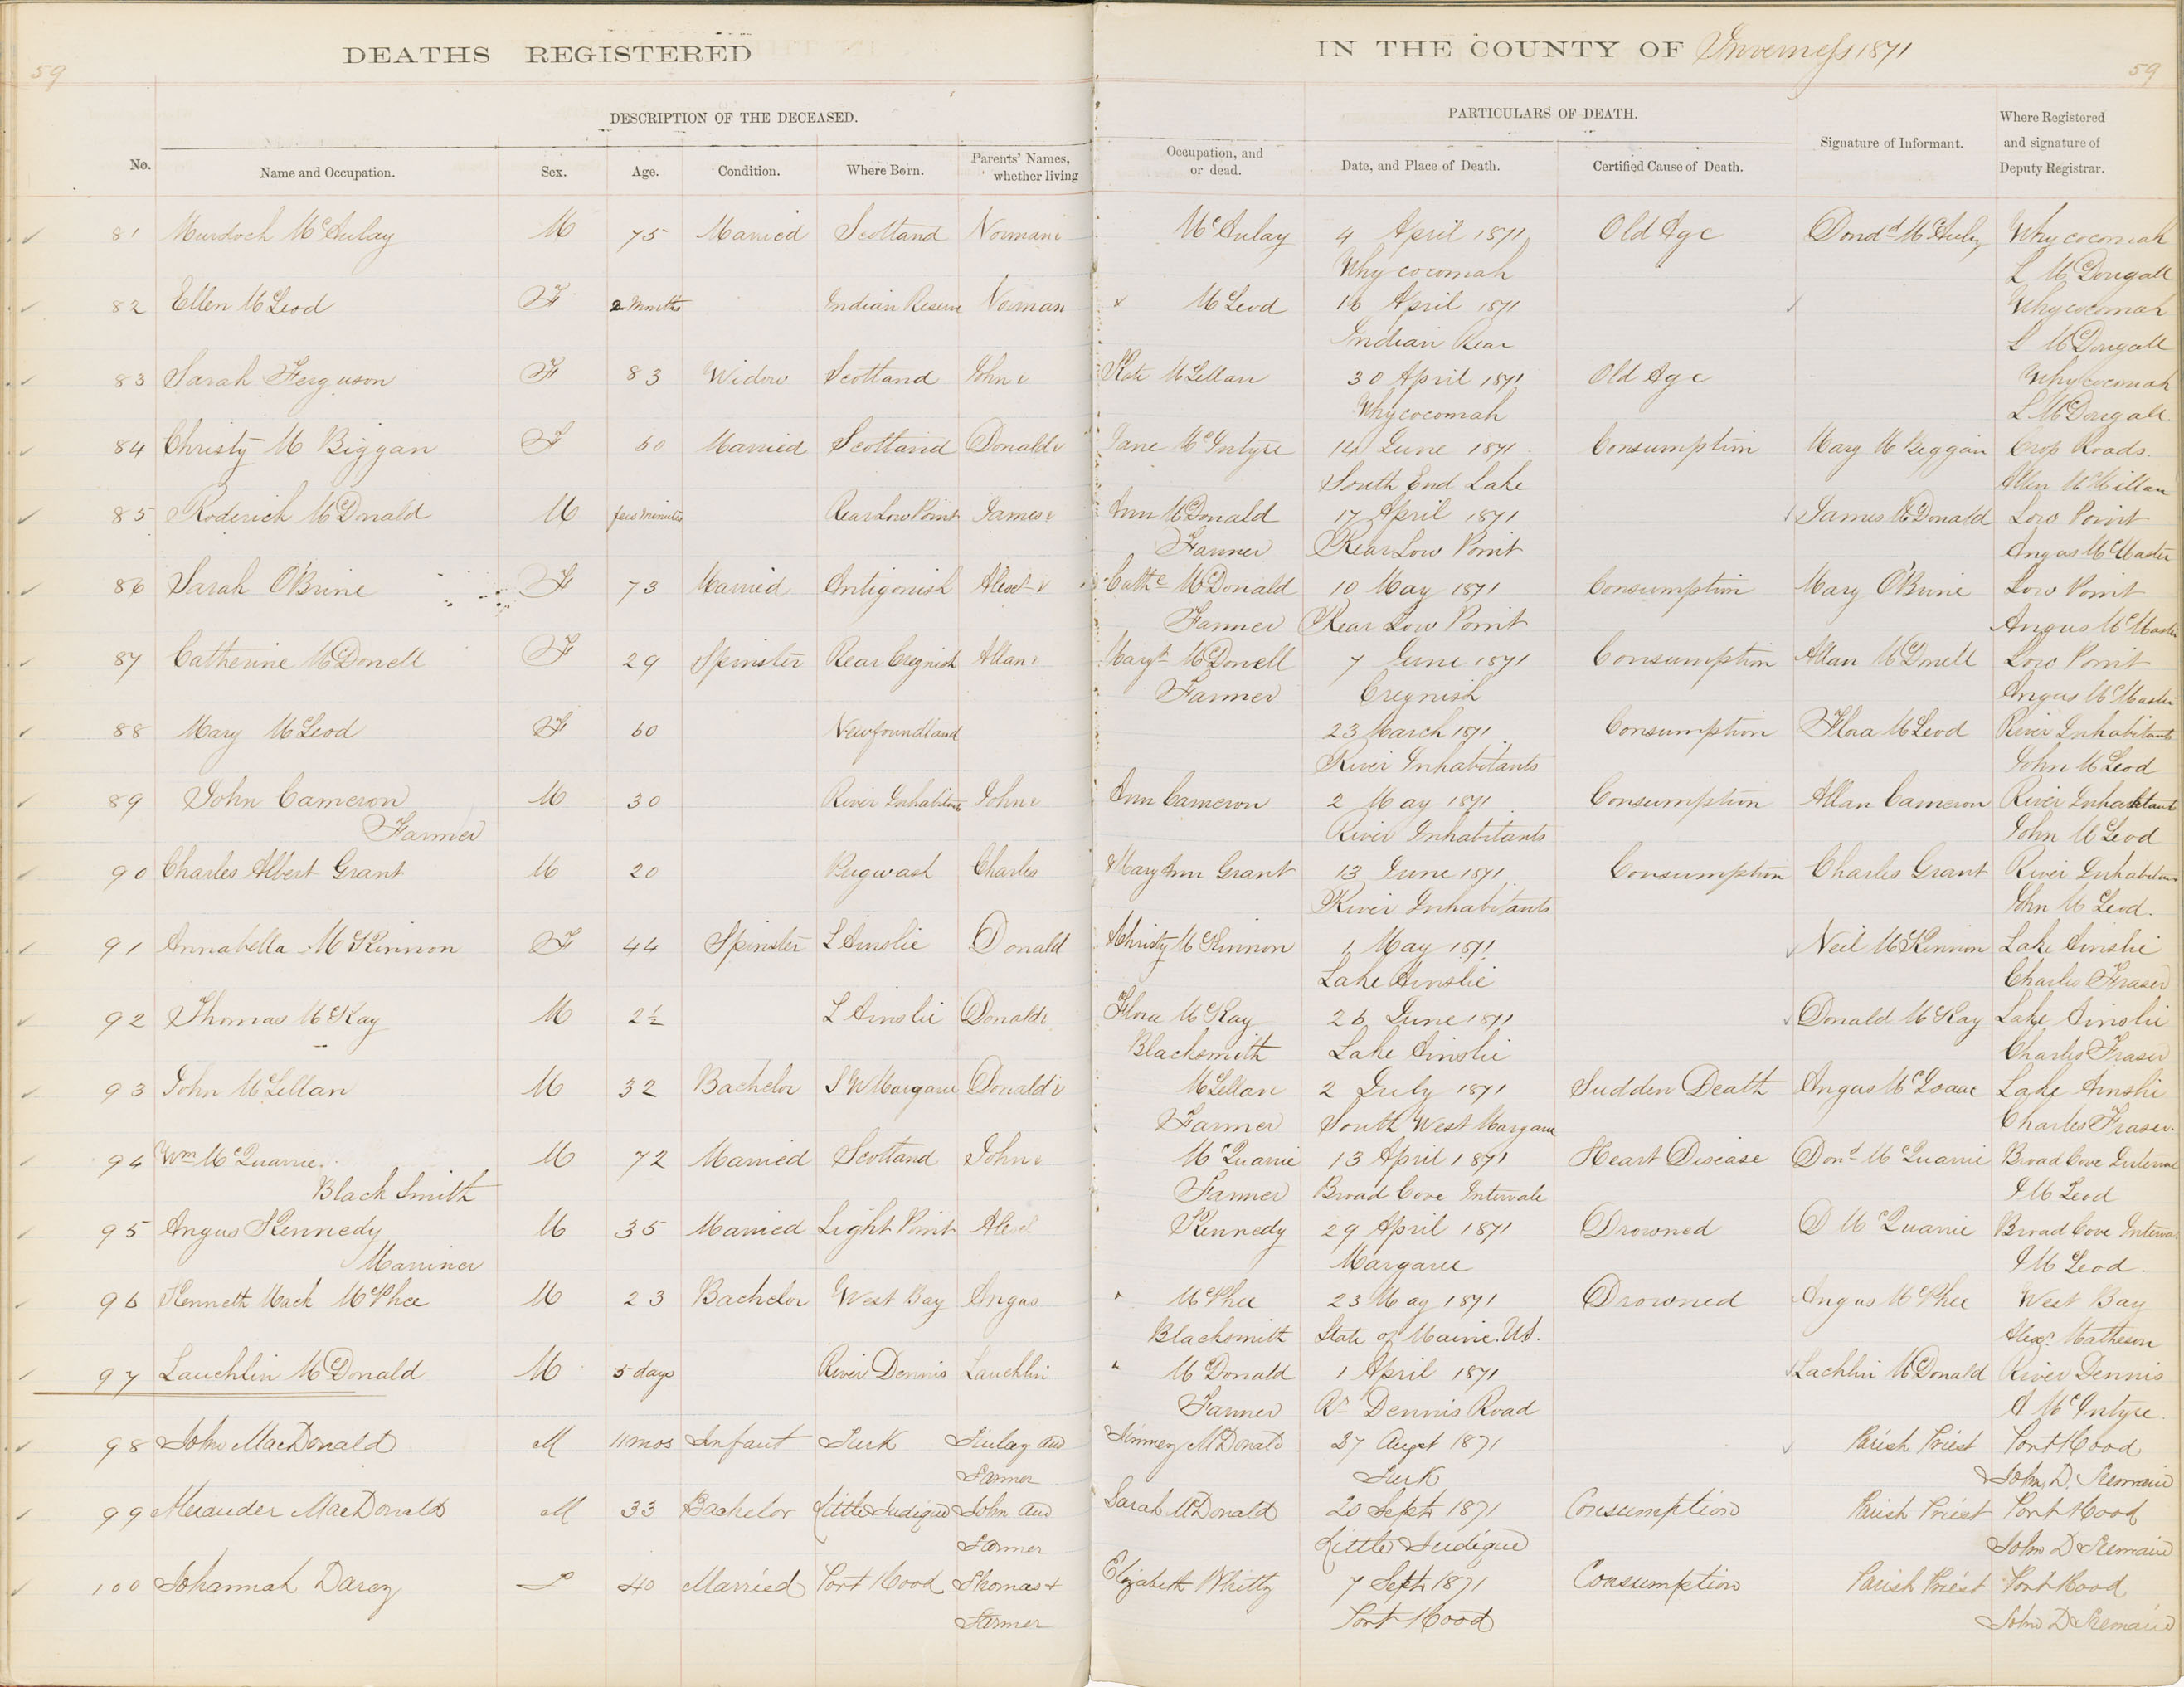 59
DEATHS REGISTERED
IN THE COUNTY OF Inverness 1871
59
DESCRIPTION OF THE DECEASED.
PARTICULARS OF DEATH.
No. Name and Occupation. Sex. Age. Condition. Where Born. Parents' Names, whether living Occupation, and or dead. Date, and Place of Death. Certified Cause of Death. Signature of Informant. Where Registered and signature of Deputy Registrar.
81 Murdoch McAulay M 75 Married Scotland Norman & McAulay 4 April 1871 Old Age Dond McAuly Whycocomah
Whycocomah L McDougall
82 Ellen McLeod F 2 Months Indian Reserve Norman & McLeod 16 April 1871 Whycocomah
Indian Rear L McDougall
83 Sarah Ferguson F 83 Widow Scotland John & Kate McLellan 30 April 1871 Old Age Whycocomah
Whycocomah L McDougall
84 Christy M Biggan F 60 Married Scotland Donald & Jane McIntyre 14 June 1871 Consumption Mary McBiggan Cross Roads.
South End Lake Allen McMillan
85 Roderick McDonald M few minutes Rear Low Point James & Ann McDonald 17 April 1871 James McDonald Low Point
Farmer Rear Low Point Angus McMaster
86 Sarah O'Brine F 73 Married Antigonish Alexr & Cathe McDonald 10 May 1871 Consumption Mary O'Brine Low Point
Farmer Rear Low Point Angus McMaster
87 Catherine McDonell F 29 Spinster Rear Cregnish Allan & Margt McDonell 7 June 1871 Consumption Allan McDonell Low Point
Farmer Cregnish Angus McMaster
88 Mary McLeod F 60 Newfoundland 23 March 1871 Consumption Flora McLeod River Inhabitants
River Inhabitants John McLeod
89 John Cameron M 30 River Inhabitants John & Ann Cameron 2 May 1871 Consumption Allan Cameron River Inhabitants
Farmer River Inhabitants John McLeod
90 Charles Albert Grant M 20 Pugwash Charles & Mary Ann Grant 13 June 1871 Consumption Charles Grant River Inhabitants
River Inhabitants John McLeod.
91 Annabella McKinnon F 44 Spinster L Ainslie Donald & Christy McKinnon 1 May 1871 Neil McKinnon Lake Ainslie
Lake Ainslie Charles Fraser
92 Thomas McKay M 2½ L Ainslie Donald & Flora McKay 26 June 1871 Donald McKay Lake Ainslie
Blacksmith Lake Ainslie Charles Fraser
93 John McLellan M 32 Bachelor S W Margaree Donald & McLellan 2 July 1871 Sudden Death Angus McIsaac Lake Ainslie
Farmer South West Margaree Charles Fraser.
94 Wm McQuarrie M 72 Married Scotland John & McQuarrie 13 April 1871 Heart Disease Dond McQuarrie Broad Cove Intervale
Black Smith Farmer Broad Cove Intervale J McLeod
95 Angus Kennedy M 35 Married Light Point Alexr Kennedy 29 April 1871 Drowned D McQuarrie Broad Cove Interval
Marriner Margaree J McLeod.
96 Kenneth Mack McPhee M 23 Bachelor West Bay Angus " McPhee 23 May 1871 Drowned Angus McPhee West Bay
Blacksmith State of Maine. US. Alexr. Matheson
97 Lauchlin McDonald M 5 days River Dennis Lauchlin " McDonald 1 April 1871 Lachlin McDonald River Dennis
Farmer Rr Dennis Road A McIntyre.
98 John MacDonald M 11 mos Infant Turk Finlay and McDonald 27 Augst 1871 Parish Priest Port Hood
Farmer Turk John D.
99 Alexander MacDonald M 33 Bachelor Little Judique John and Sarah McDonald 20 Sept 1871 Consumption Parish Priest Port Hood
Farmer Little Judique John D
100 Johannah Darcy F 40 Married Port Hood Thomas + Elizabeth Whitty 7 Sept 1871 Consumption Parish Priest Port Hood
Farmer Port Hood John D